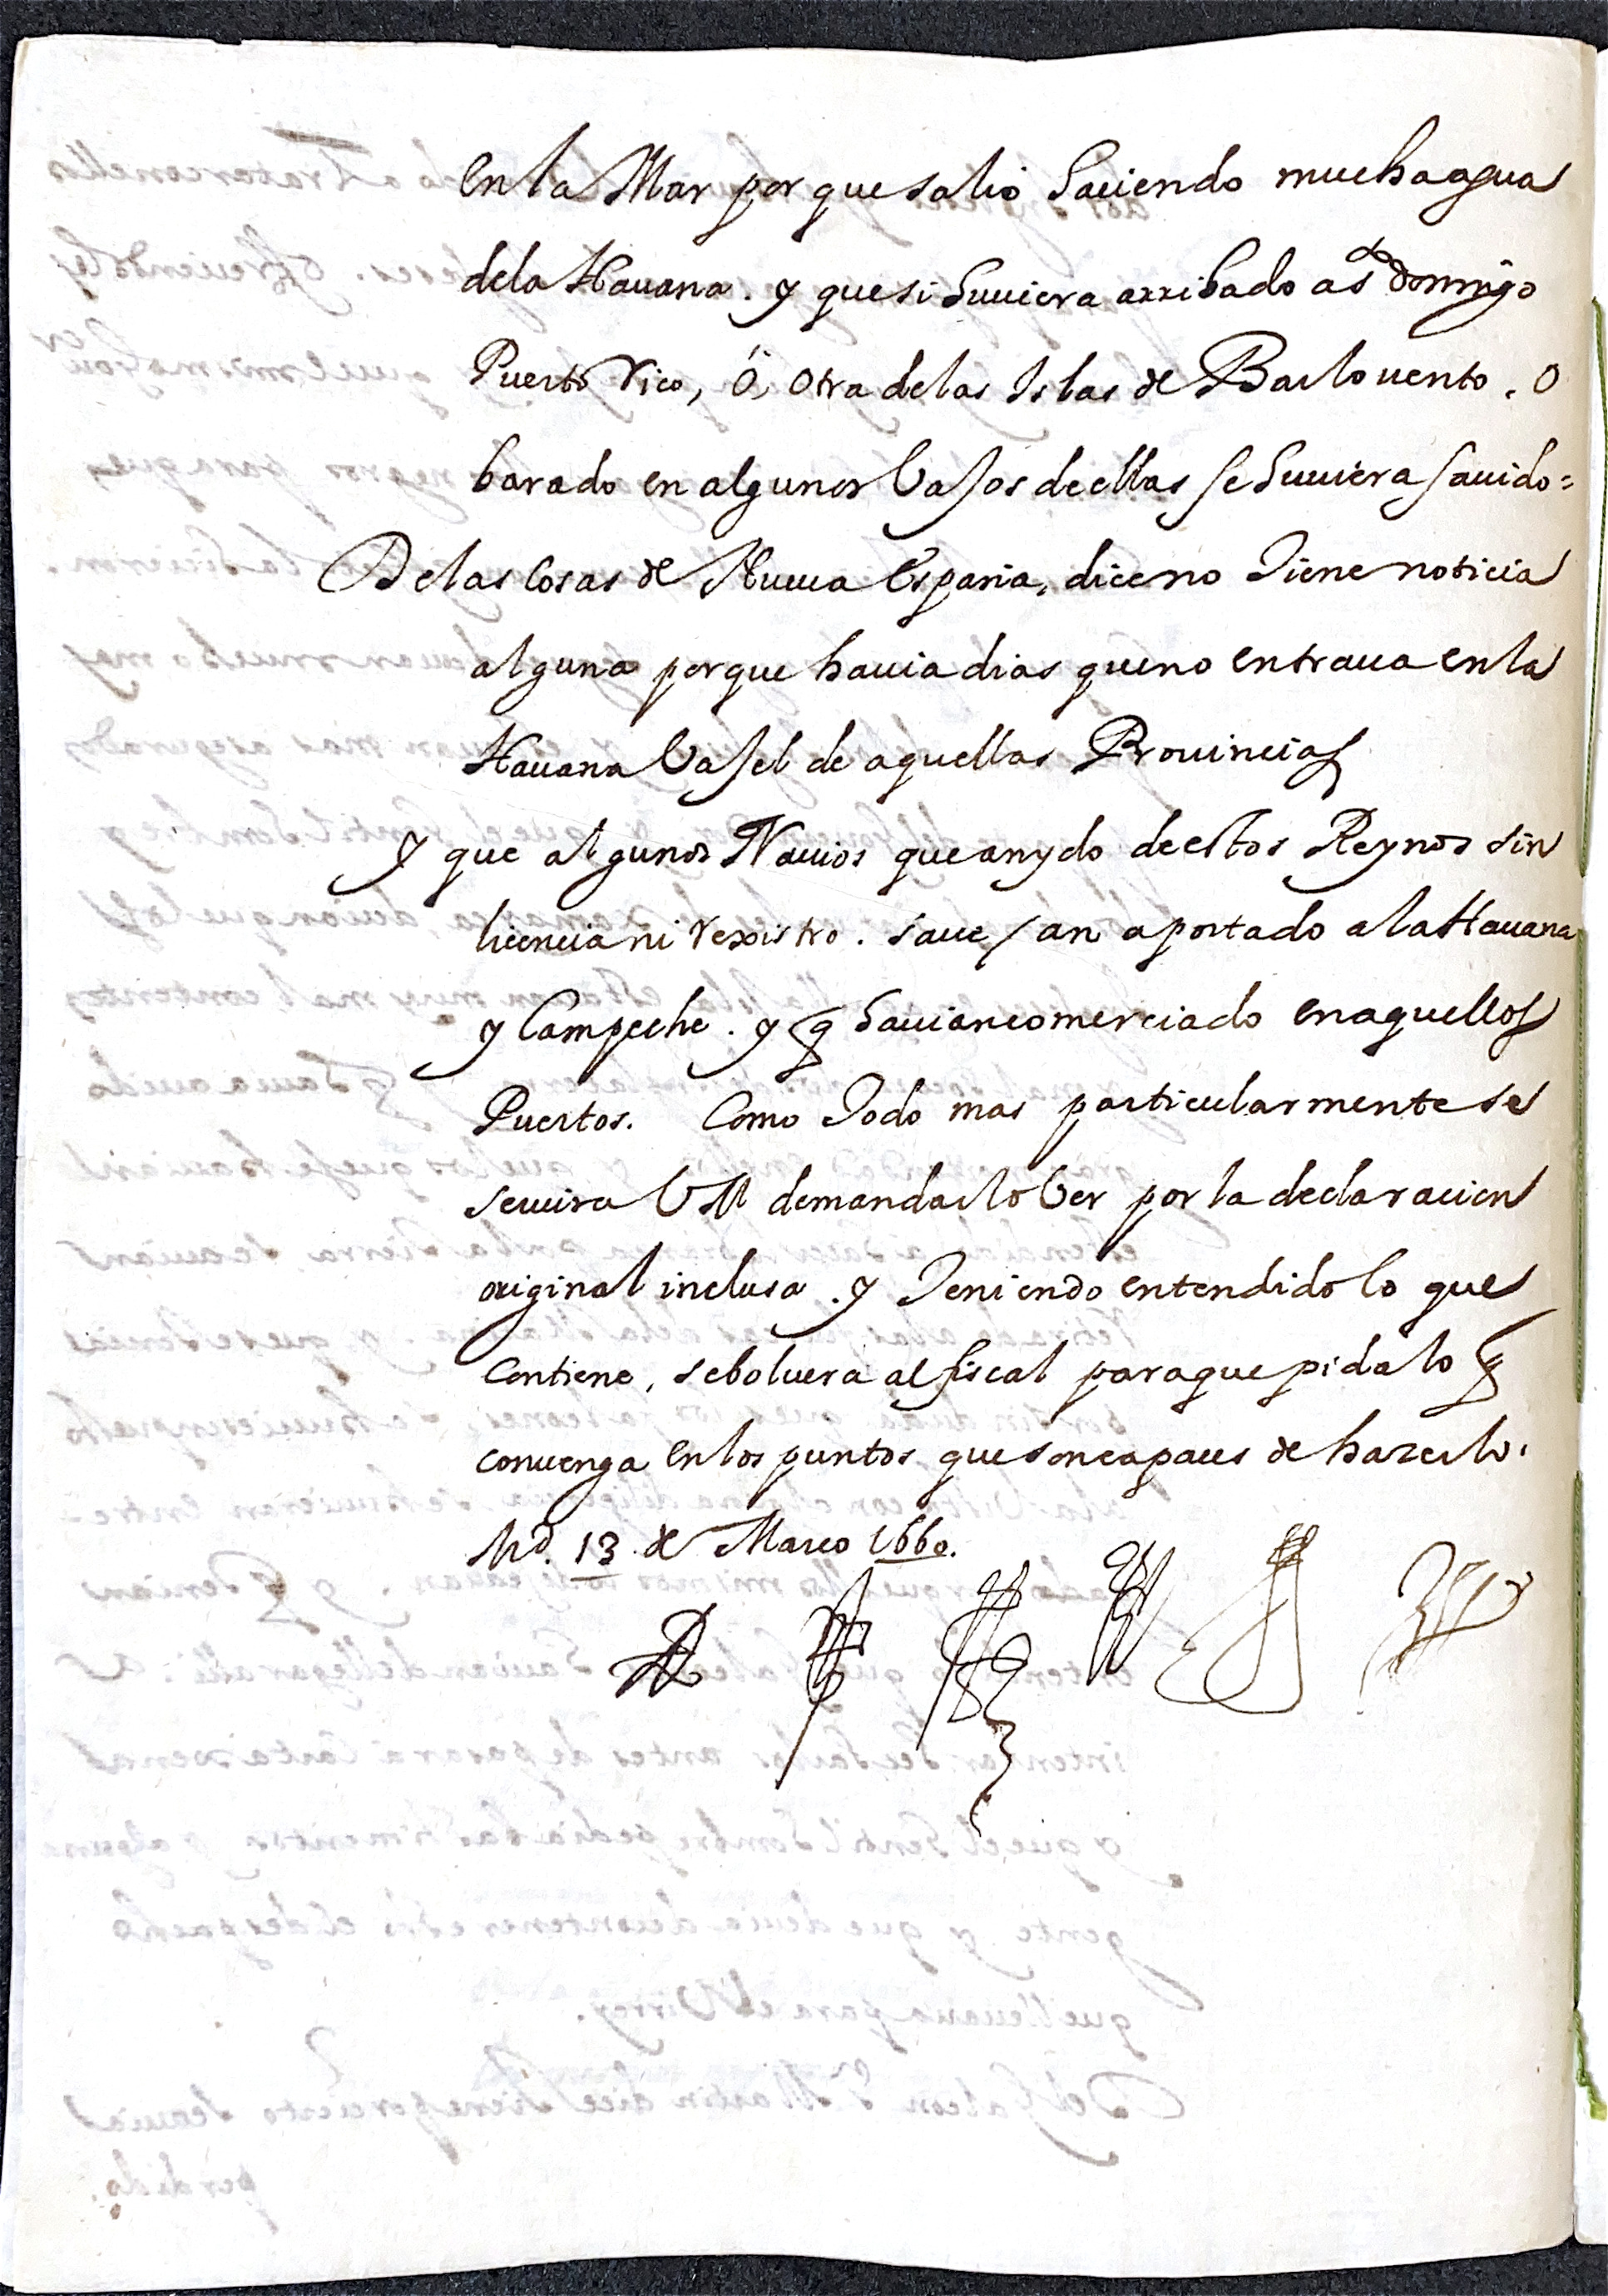 en la Mar por que salio haciendo mucha agua
de la Hauana. y que si huuiera arribado a sto domingo
Puerto Rico, ó, otra de las Islas de Barlouento, o
barado en algunos Vajos de ellas se huuiera sauido =
De las cosas de Nueua España, dice no tiene noticia
alguna porque hauia dias que no entraua en la
Hauana Vajel de aquellas Prouincias
y que algunos Nauios que an ydo de estos Reynos sin
licencia ni rexistro. saue, an aportado a la Hauana
y Campeche. y q hauian comerciado en aquellos
Puertos. Como todo mas particularmente se
seruira VM de mandarlo Ver por la declaracion
original inclusa. y teniendo entendido lo que
contiene, se boluera al fiscal para que pida lo q
conuenga en los puntos que son capaces de hazerlo.
Md. 13 de Março 1660.